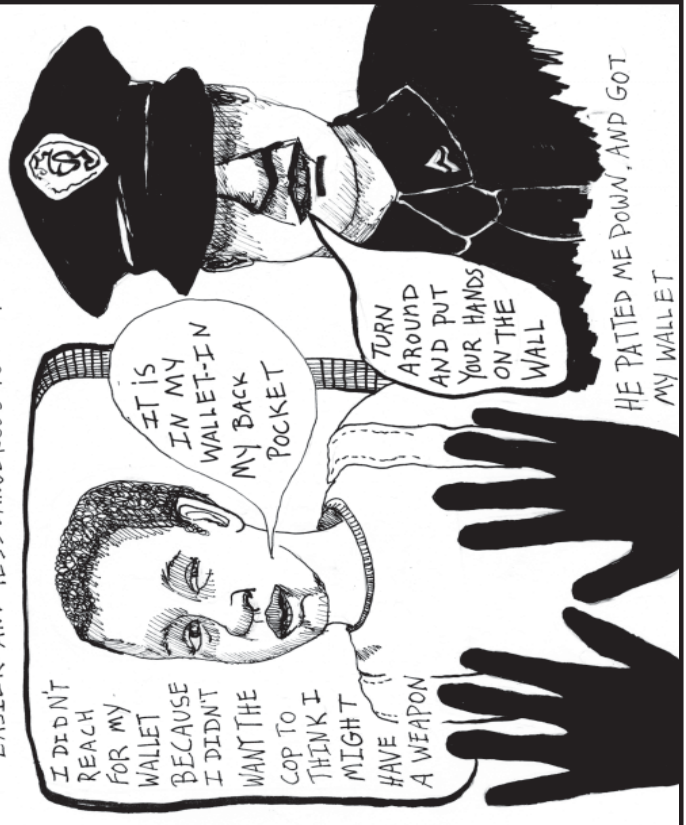 I DIDN'T
REACH
FOR MY
WALLET
BECAUSE
I DIDN'T
WANT THE
COP TO
THINK I
MIGHT
HAVE
A WEAPON
IT iS
IN MY
WALLET-IN
MY BACK
POCKET
TURN
AROUND
AND PUT
YOUR HANDS
ON THE
WALL
HE PATTED ME DOWN, AND GOT
MY WALLET